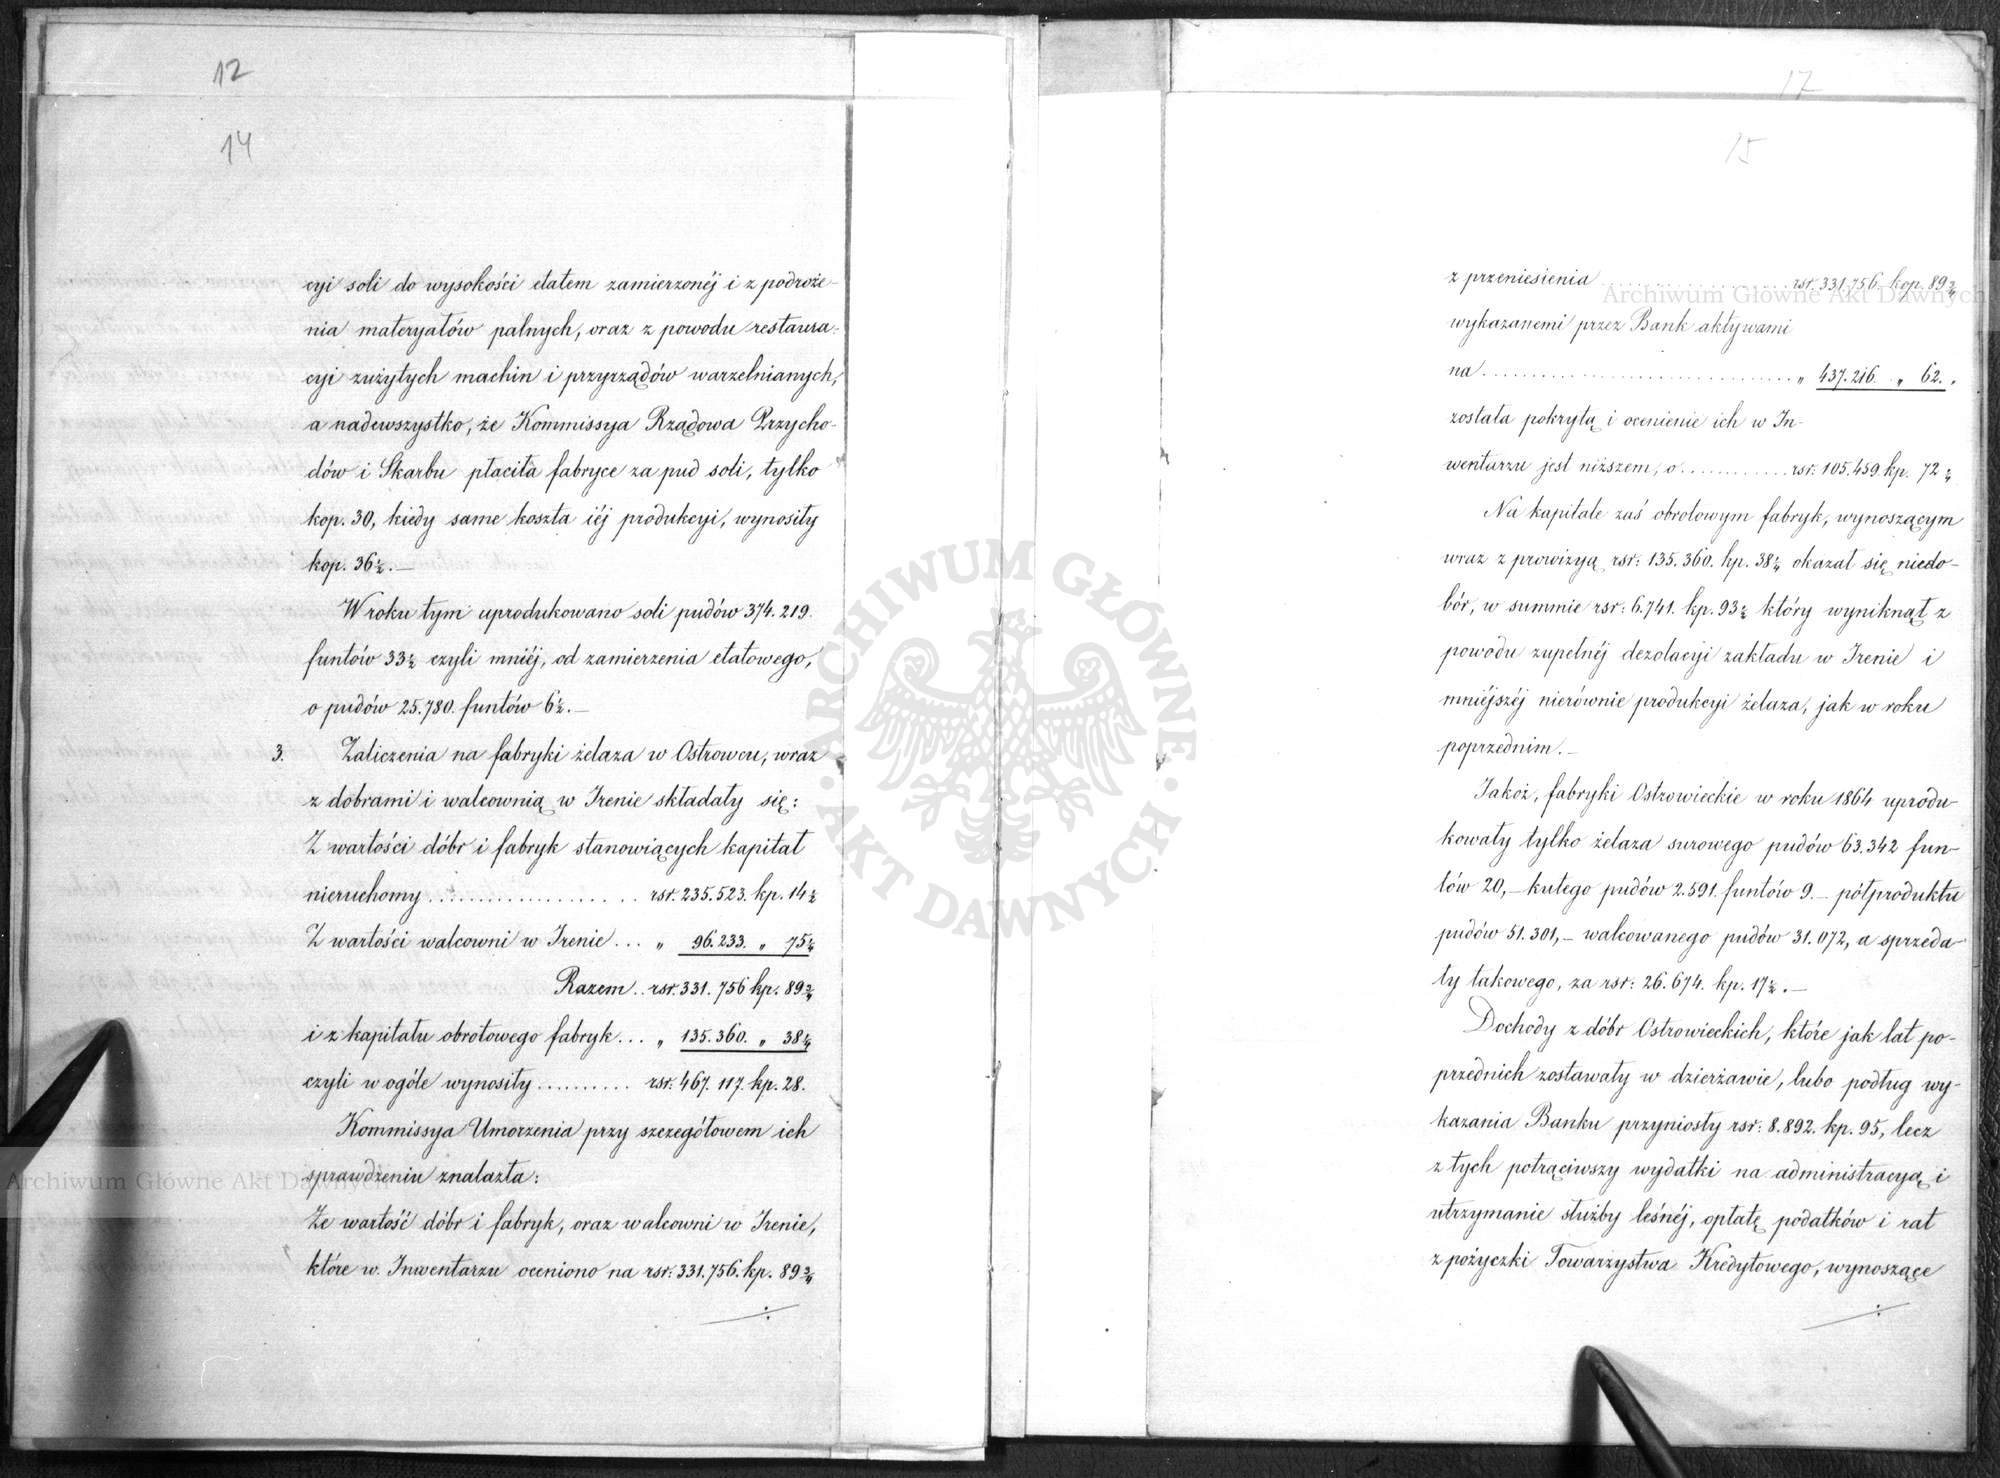 12
14
cyi soli do wysokości etatem zamierzonéj i z podroże-
nia materyałów palnych, oraz z powodu restaura-
cyi zużytych machin i przyrządów warzelnianych,
a nadewszystko, że Kommissya Rządowa Przycho-
dów i Skarbu płaciła fabryce za pud soli, tylko
kop. 30, kiedy same koszta iéj produkcyi, wynosiły
kop. 36½.—
W roku tym uprodukowano soli pudów 374.219.
funtów 33½ czyli mniéj, od zamierzenia etatowego,
o pudów 25.780. funtów 6½.—
3. Zaliczenia na fabryki żelaza w Ostrowcu, wraz
z dobrami i walcownią w Irenie składały się:
Z wartości dóbr i fabryk stanowiących kapitał
nieruchomy .................. rsr. 235.523. kp. 14½
Z wartości walcowni w Irenie ... „ 96.233. „ 75¼
Razem .. rsr. 331.756 kp. 89¾
i z kapitału obrotowego fabryk ... „ 135.360. „ 38¼
czyli w ogóle wynosiły .......... rsr. 467.117 kp. 28.
Kommissya Umorzenia przy szczegółowem ich
sprawdzeniu znalazła:
Że wartość dóbr i fabryk, oraz walcowni w Irenie,
które w Inwentarzu oceniono na rsr. 331.756. kp. 89¾
17
15
z przeniesienia .................. rsr. 331.756. kop. 89¾
wykazanemi przez Bank aktywami
na .............................. „ 437.216. „ 62. „
została pokrytą i ocenienie ich w In-
wentarzu jest niższem, o ........... rsr. 105.459. kp. 72¼
Na kapitale zaś obrotowym fabryk, wynoszącym
wraz z prowizyą rsr: 135.360. kp. 38¼ okazał się niedo-
bór, w summie rsr: 6.741. kp. 93½ który wyniknął z
powodu zupełnéj dezolacyi zakładu w Irenie i
mniéjszéj nierównie produkcyi żelaza, jak w roku
poprzednim.—
Jakoż, fabryki Ostrowieckie w roku 1864 uprodu-
kowały tylko żelaza surowego pudów 63.342 fun-
tów 20,— kutego pudów 2.591. funtów 9.— półproduktu
pudów 51.301,— walcowanego pudów 31.072, a sprzeda-
ły takowego, za rsr: 26.674. kp. 17½.—
Dochody z dóbr Ostrowieckich, które jak lat po-
przednich zostawały w dzierżawie, lubo podług wy-
kazania Banku przyniosły rsr: 8.892. kp. 95, lecz
z tych potrąciwszy wydatki na administracyą i
utrzymanie służby leśnéj, opłatę podatków i rat
z pożyczki Towarzystwa Kredytowego, wynoszące
Archiwum Główne Akt Dawnych
Archiwum Główne Akt Dawnych
ARCHIWUM GŁÓWNE · AKT DAWNYCH ·